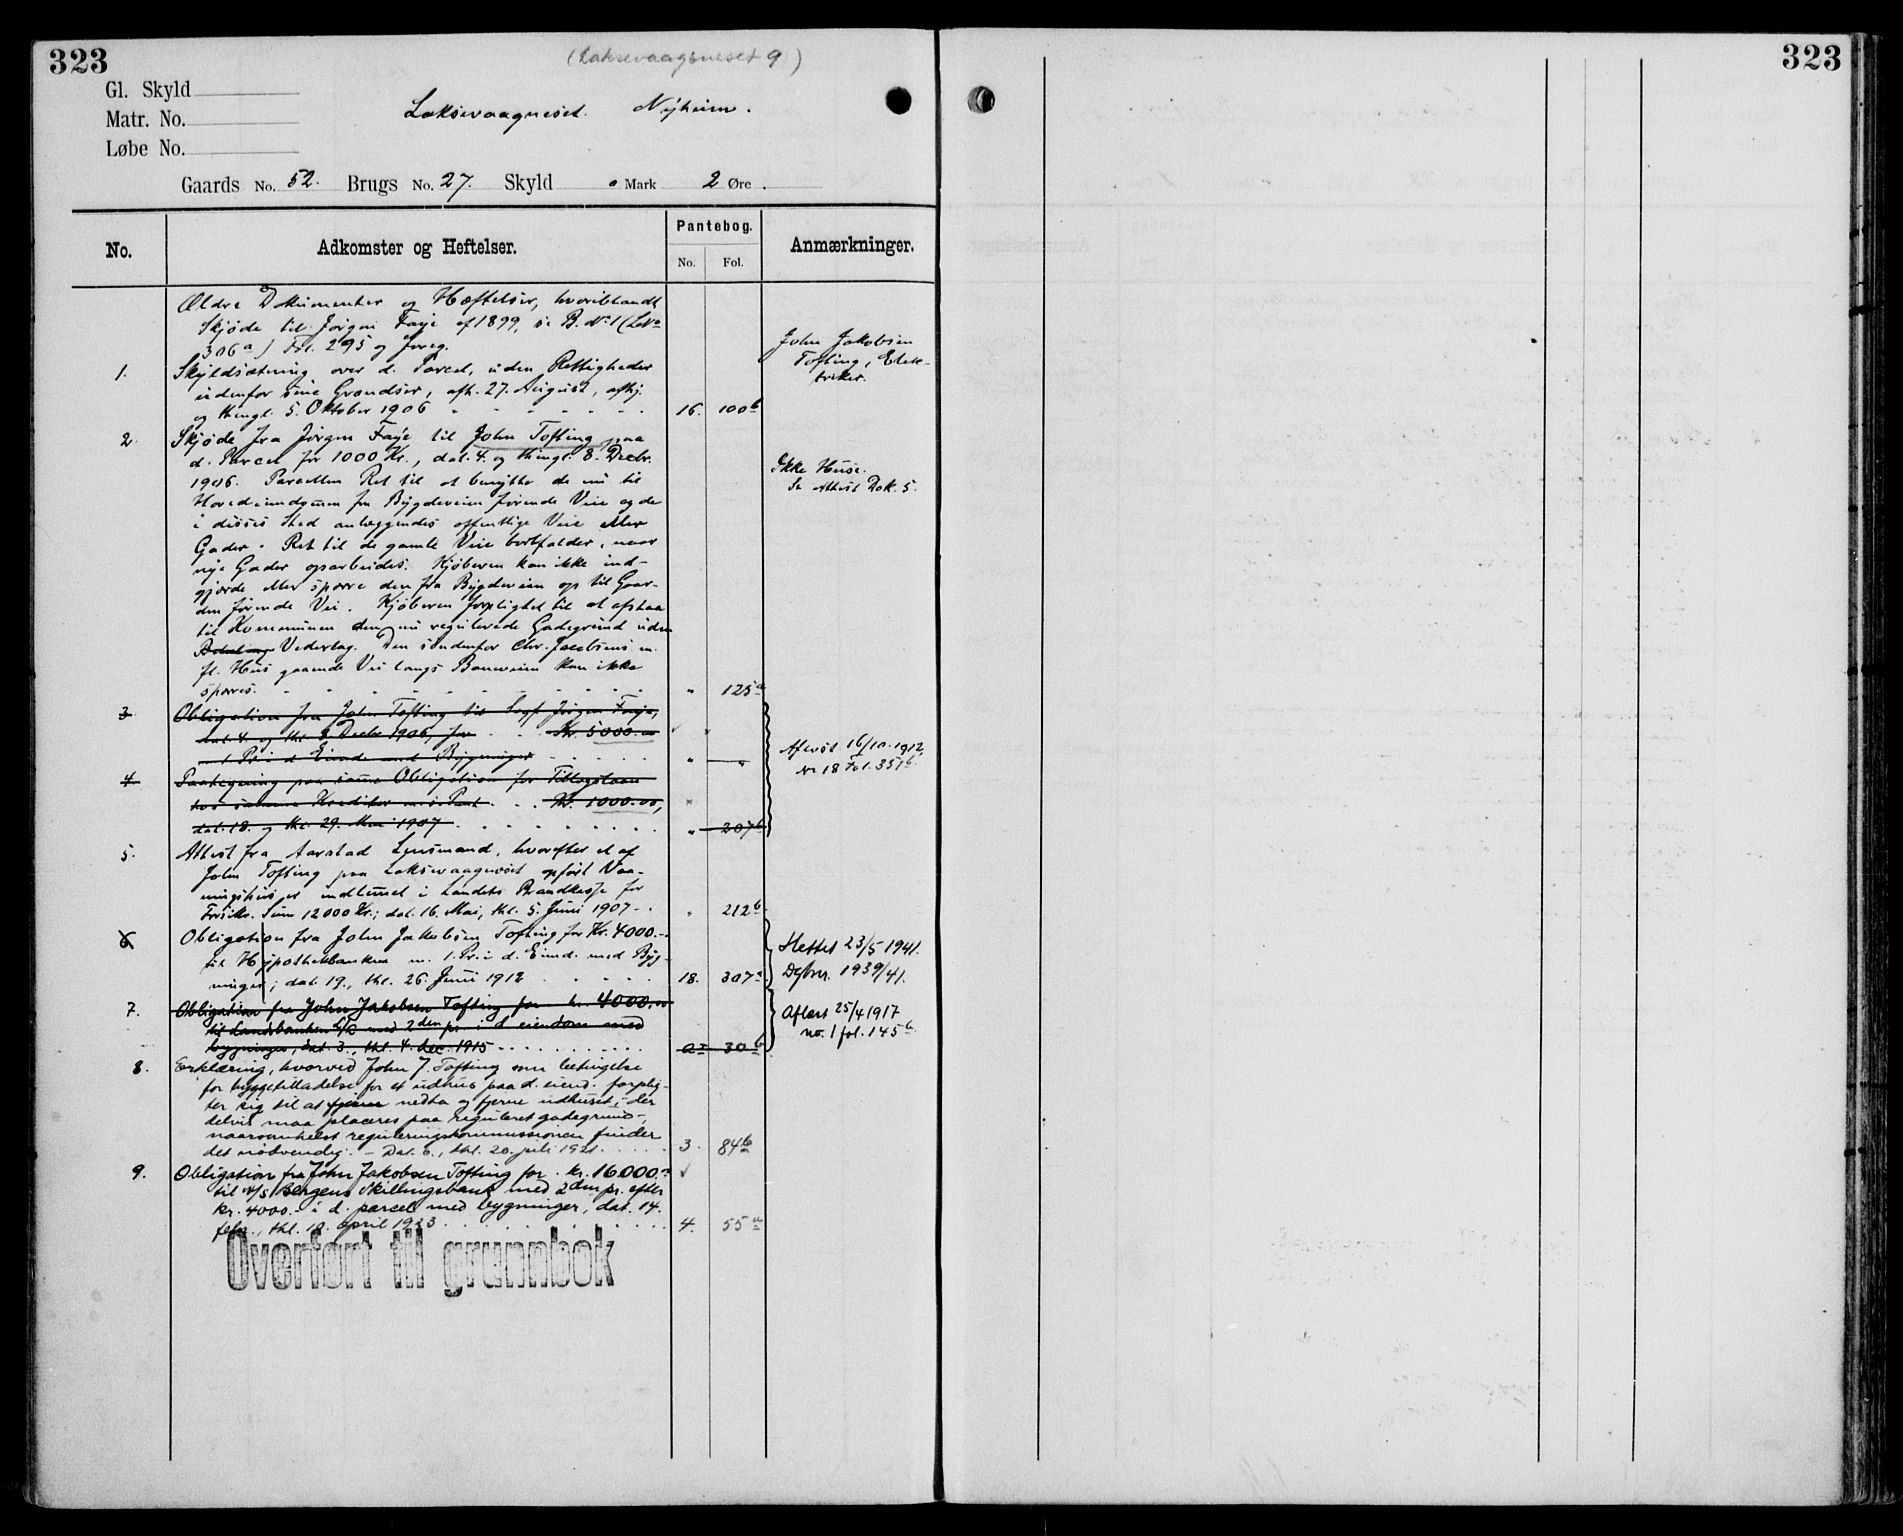 323
(Laksevaagsneset 9)
323
Gl. Skyld
Matr. No.
Laksevaagneset. Nyheim.
Løbe No.
Gaards No. 52. Brugs No. 27. Skyld " Mark 2 Øre.
No.
Adkomster og Heftelser.
Pantebog.
No. Fol.
Anmærkninger.
Ældre Dokumenter og Hæftelser, hvoriblandt
Skjøde til Jørgen Faye af 1899, se B. No 1 (LNo
306a) Fol. 295 og foreg.
1. Skyldsætning over d. Parcel, uden Rettigheder
udenfor sine Grændser, afh. 27. August, afhj.
og thingl. 5. Oktober 1906 16. 100b
John Jakobsen
Tofting, Elek-
triker.
2. Skjøde fra Jørgen Faye til John Tofting paa
d. Parcel for 1000 Kr., dat. 4. og thingl. 8. Decbr.
1906. Parcellen Ret til at benytte de nu til
Hovedindgjennem fra Bygdeveien førende Veie og de
i disses Sted anlæggendes offentlige Veie eller
Gader. Ret til de gamle Veie bortfalder, naar
nye Gader oparbeides. Kjøberen kan ikke ind-
gjærde eller spærre den fra Bygdeveien op til Gaar-
den førende Vei. Kjøberen forpligtet til at afstaa
til Kommunen den nu regulerede Gadegrund uden
Betaling Vederlag. Den søndenfor Chr. Jacobsens m.
fl. Hus gaaende Vei langs Baneveien kan ikke
spærres. " 125a
Ikke Huse.
Se Attest Dok. 5.
3. Obligation fra John Tofting til Sagf. Jørgen Faye,
dat. 4. og thl. 8. Decbr. 1906, for Kr. 5000.00
m 1 Pr. i d. Eiende med Bygninger " "
4. Paategning paa samme Obligation for Tillægslaan
hos samme Kreditor m. s. Pant. Kr. 1000.00,
dat. 18. og thl. 29. Mai 1907 " 207b
Aflyst 16/10-1912,
No 18 Fol. 351b
5. Attest fra Aarstad Lensmand, hvorefter et af
John Tofting paa Laksevaagneset opført Vaa-
ningshus er indtegnet i Landets Brandkasse for
Forsikr. Sum 12000 Kr.; dat. 16. Mai, thl. 5. Juni 1907 " 212b
6. Obligation fra John Jakobsen Tofting for Kr. 4000.-
til Hypothekbanken m. 1. Pr. i d. Eiend. med Byg-
ninger; dat. 19., thl. 26. Juni 1912 18. 307a
Slettet 23/5 1941.
Dgbnr. 1939/41.
7. Obligation fra John Jakobsen Tofting for kr. 4000.00
til Landsbanken A/S med 2den pr. i d eiendom med
bygninger, dat. 3., thl. 4. dec. 1915 30b
Aflæst 25/4 1917
no. 1 fol. 145b
8. Erklæring, hvorved John J. Tofting som betingelse
for byggetilladelse for et udhus paa d. eiend. forplig-
ter sig til at fjerne nedta og fjerne udhuset, - der
delvis maa placeres paa reguleret gadegrund -,
naarsomhelst reguleringskommissionen finder
det nødvendig. - Dat. 6., thl. 20. juli 1921. 3. 84b
9. Obligation fra John Jakobsen Tofting for kr. 16.000.-
til A/S Bergens Skillingsbank med 2den pr. efter
kr. 4000.- i d. parcel med bygninger, dat. 14.
febr., thl. 10. april 1923 4. 55a
Overført til grunnbok